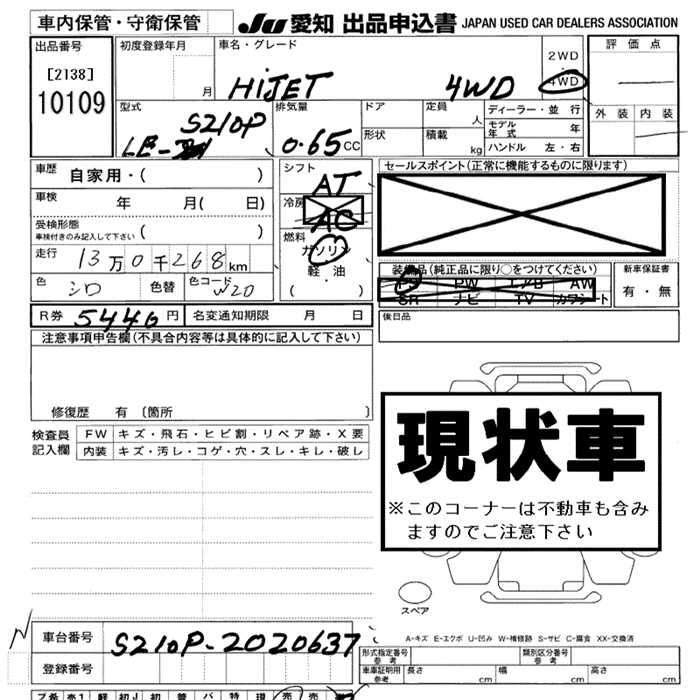 車内保管・守衛保管 JU 愛知 出品申込書 JAPAN USED CAR DEALERS ASSOCIATION
出品番号
[2138]
10109
初度登録年月
月
車名・グレード
HiJET 4WD
2WD
・
4WD
評価点
外装 内装
型式
S210P
排気量
0.65 CC
ドア
形状
定員
人
積載
kg
ディーラー・並行
モデル年式 年
ハンドル 左・右
車歴 自家用・( )
車検 年 月( 日)
受検形態
車検付きのみ記入して下さい ( )
走行 13万0千268km
色 シロ 色替 色コード W20
シフト
AT
冷房
AC
燃料
ガソリン
軽・油
( ・ )
セールスポイント(正常に機能するものに限ります)
装備品(純正品に限り○をつけてください)
PS PW エアB AW
SR ナビ TV カワシート
新車保証書
有・無
R券 5440円 名変通知期限 月 日
後日品
注意事項申告欄(不具合内容等は具体的に記入して下さい)
修復歴 有 〔箇所 〕
検査員
記入欄
FW キズ・飛石・ヒビ割・リペア跡・X要
内装 キズ・汚レ・コゲ・穴・スレ・キレ・破レ
現状車
※このコーナーは不動車も含み
ますのでご注意下さい
スペア
A-キズ E-エクボ U-凹み W-補修跡 S-サビ C-腐食 XX-交換済
車台番号 S210P-2020637
登録番号
型式指定番号
参考
類別区分番号
参考
車庫証明用
参考
長さ cm 幅 cm 高さ cm